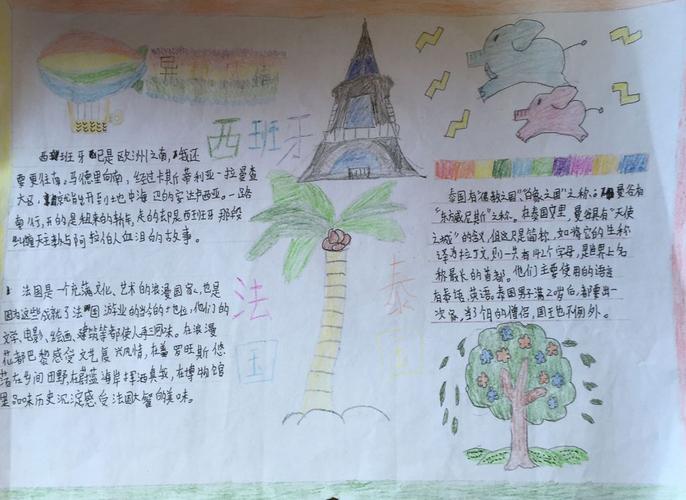 异
西班牙
西班牙已是欧洲之南,我还
要更往南,马德里向南,经过卡斯蒂利亚一拉曼查
大区,就
地中海边的安达卢西亚。一路
南行,开的是租来的轿车,走的却是西班牙那段
纠缠天主教与阿拉伯人血泪的故事。
法国
法国是一个充满文化、艺术的浪漫国家,也是
因为这些成就了法国游业的当今的地位,他们的
文学、电影、绘画、建筑等都使人手不同末。在浪漫
花都巴黎感受文艺复兴风情,在普罗旺斯悠
若在乡间田野,在蔚蓝海岸挥洒真我,在博物馆
里品味历史沉淀感受法国大餐的美味。
泰国
泰国有“佛教之国”“白象之国”之称。曼谷有
“东方威尼斯”之称。在泰国文里,曼谷具有“天使
之城”的含义,但这只是简称,如将它的全称
译为拉丁文,则一共有142个字母,是世界上名
称最长的首都。他们主要使用的语言
有泰语,英语。泰国男子满20岁后,都要出一
次家,当3个月的僧侣,国王也不例外。